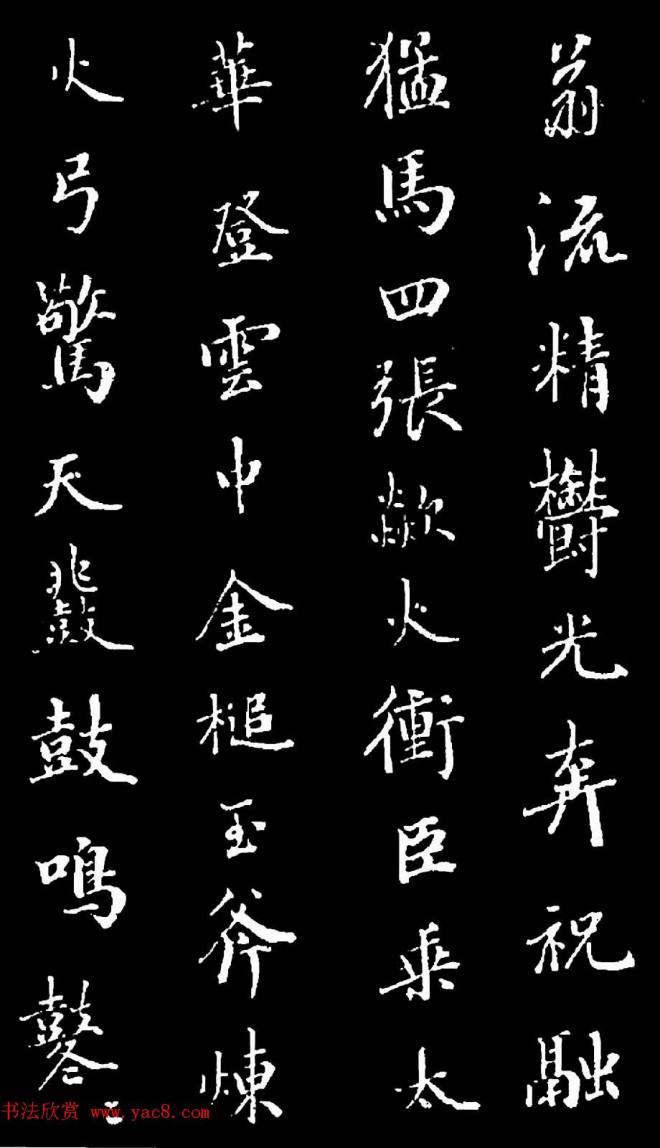 翁流精鬱光奔祝融
猛馬四張歘火衝臣乗太
華登雲中金槌玉斧煉
火弓驚天鼗鼓鳴鼛〻
书法欣赏 www.yac8.com